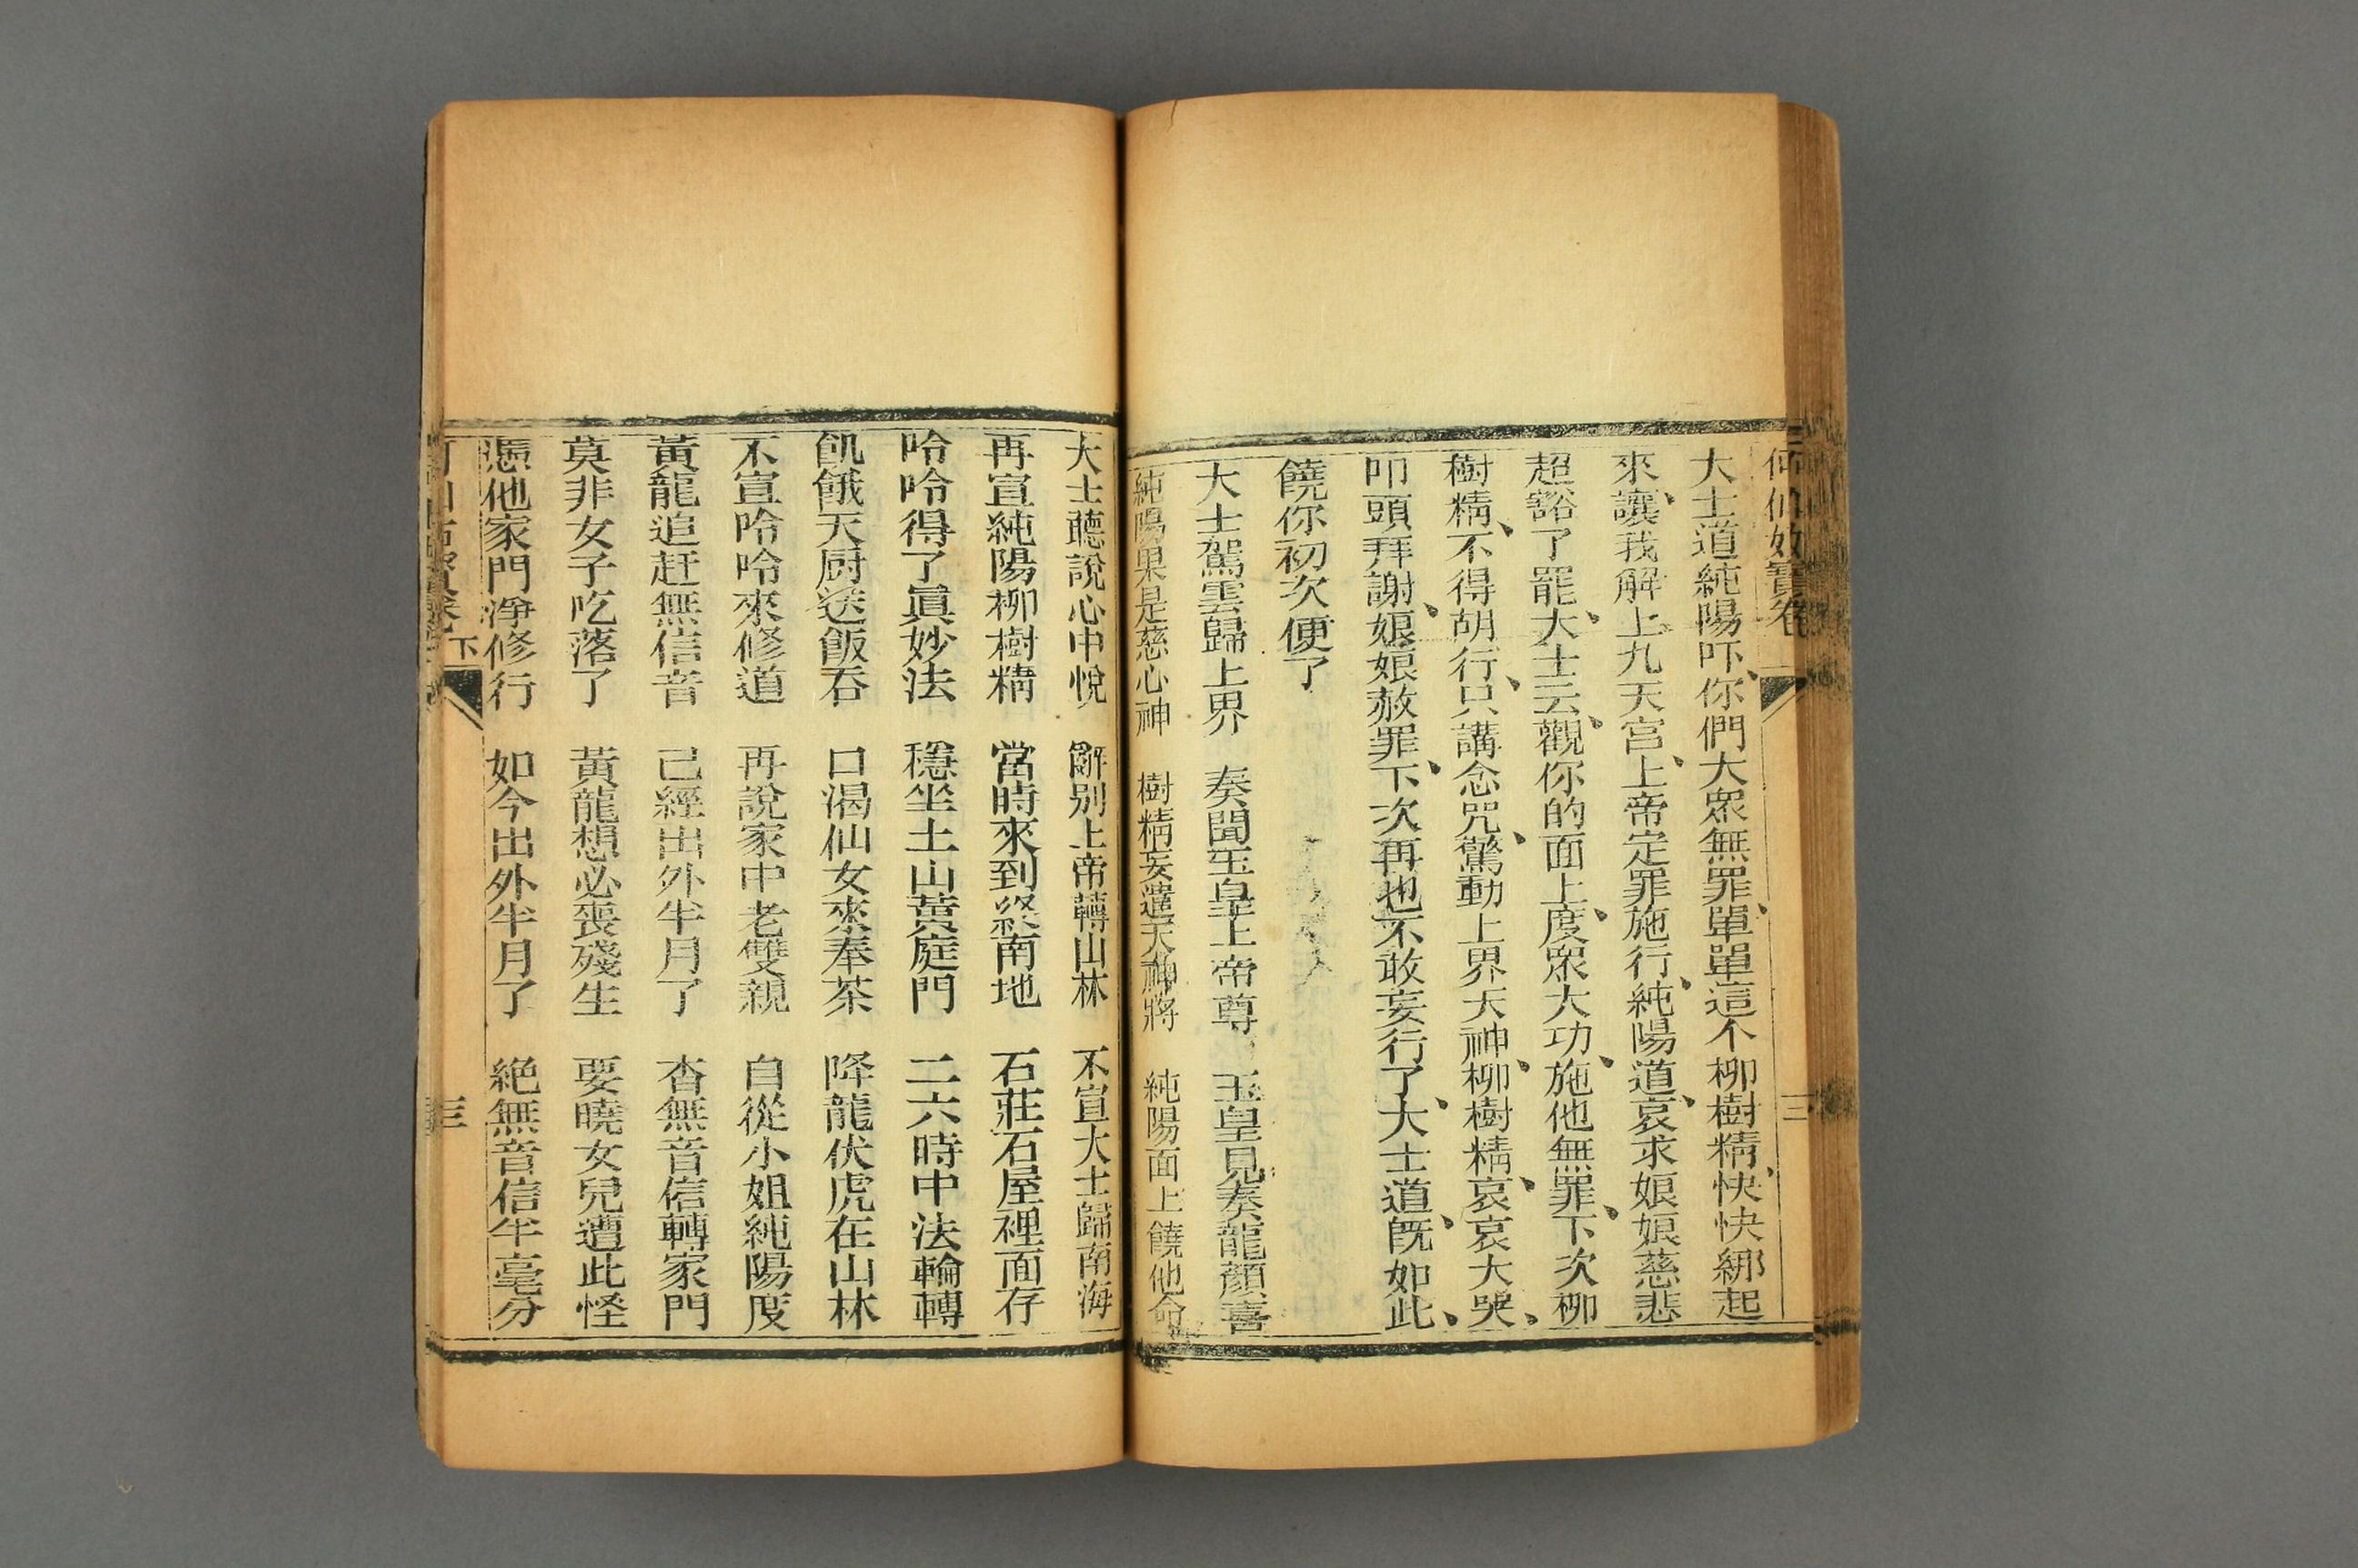 何仙姑寶卷
三
大士道純陽吓、你們大眾無罪、單單這个柳樹精、快快綁起
來、讓我解上九天宮、上帝定罪施行、純陽道、哀求娘娘慈悲
超豁了罷、大士云、觀你的面上、度眾大功、施他無罪、下次柳
樹精、不得胡行、只講念咒、驚動上界天神、柳樹精、哀哀大哭、
叩頭拜謝、娘娘赦罪、下次再也不敢妄行了、大士道、既如此、
饒你初次便了
大士駕雲歸上界 奏聞玉皇上帝尊 玉皇見奏龍顏喜
純陽果是慈心神 樹精妄遣天神將 純陽面上饒他命
大士聽說心中悅 辭別上帝轉山林 不宣大士歸南海
再宣純陽柳樹精 當時來到終南地 石莊石屋裡面存
唅唅得了眞妙法 穩坐土山黃庭門 二六時中法輪轉
飢餓天厨送飯吞 口渴仙女來奉茶 降龍伏虎在山林
不宣唅唅來修道 再說家中老雙親 自從小姐純陽度
黃龍追赶無信音 已經出外半月了 杳無音信轉家門
莫非女子吃落了 黃龍想必喪殘生 要曉女兒遭此怪
憑他家門淨修行 如今出外半月了 絕無音信半毫分
下
三